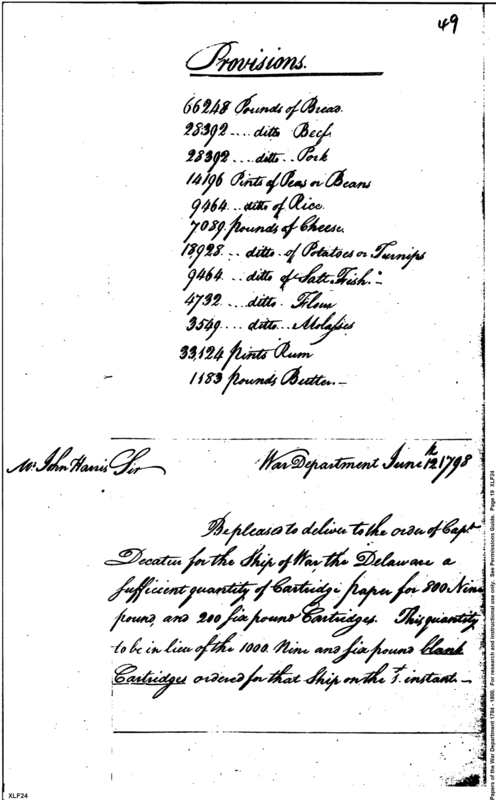 49
Provisions.
66248 Pounds of Bread.
28392 .... ditto Beef,
28392 .... ditto .. Pork
14196 Pints of Peas or Beans
9464 .. ditto of Rice.
7089 pounds of Cheese.
18928 .. ditto of Potatoes or Turnips
9464 .. ditto of Salt Fish.
4732 .... ditto Flour
3549 .... ditto .. Molasses
33,124 pints Rum
1183 pounds Butter.
Mr. John Harris Sir War Department June 12th 1798
Be pleased to deliver to the order of Capt
Decatur for the Ship of War, the Delaware a
sufficient quantity of Cartridge paper for 800 Nine
pound, and 200 six pound Cartridges. This quantity
to be in lieu of the 1000 Nine and six pound blank
Cartridges ordered for that Ship on the instant
Papers of the War Department 1784 - 1800. For research and instructional use only. See Permissions Guide. Page 19 XLF24
XLF24